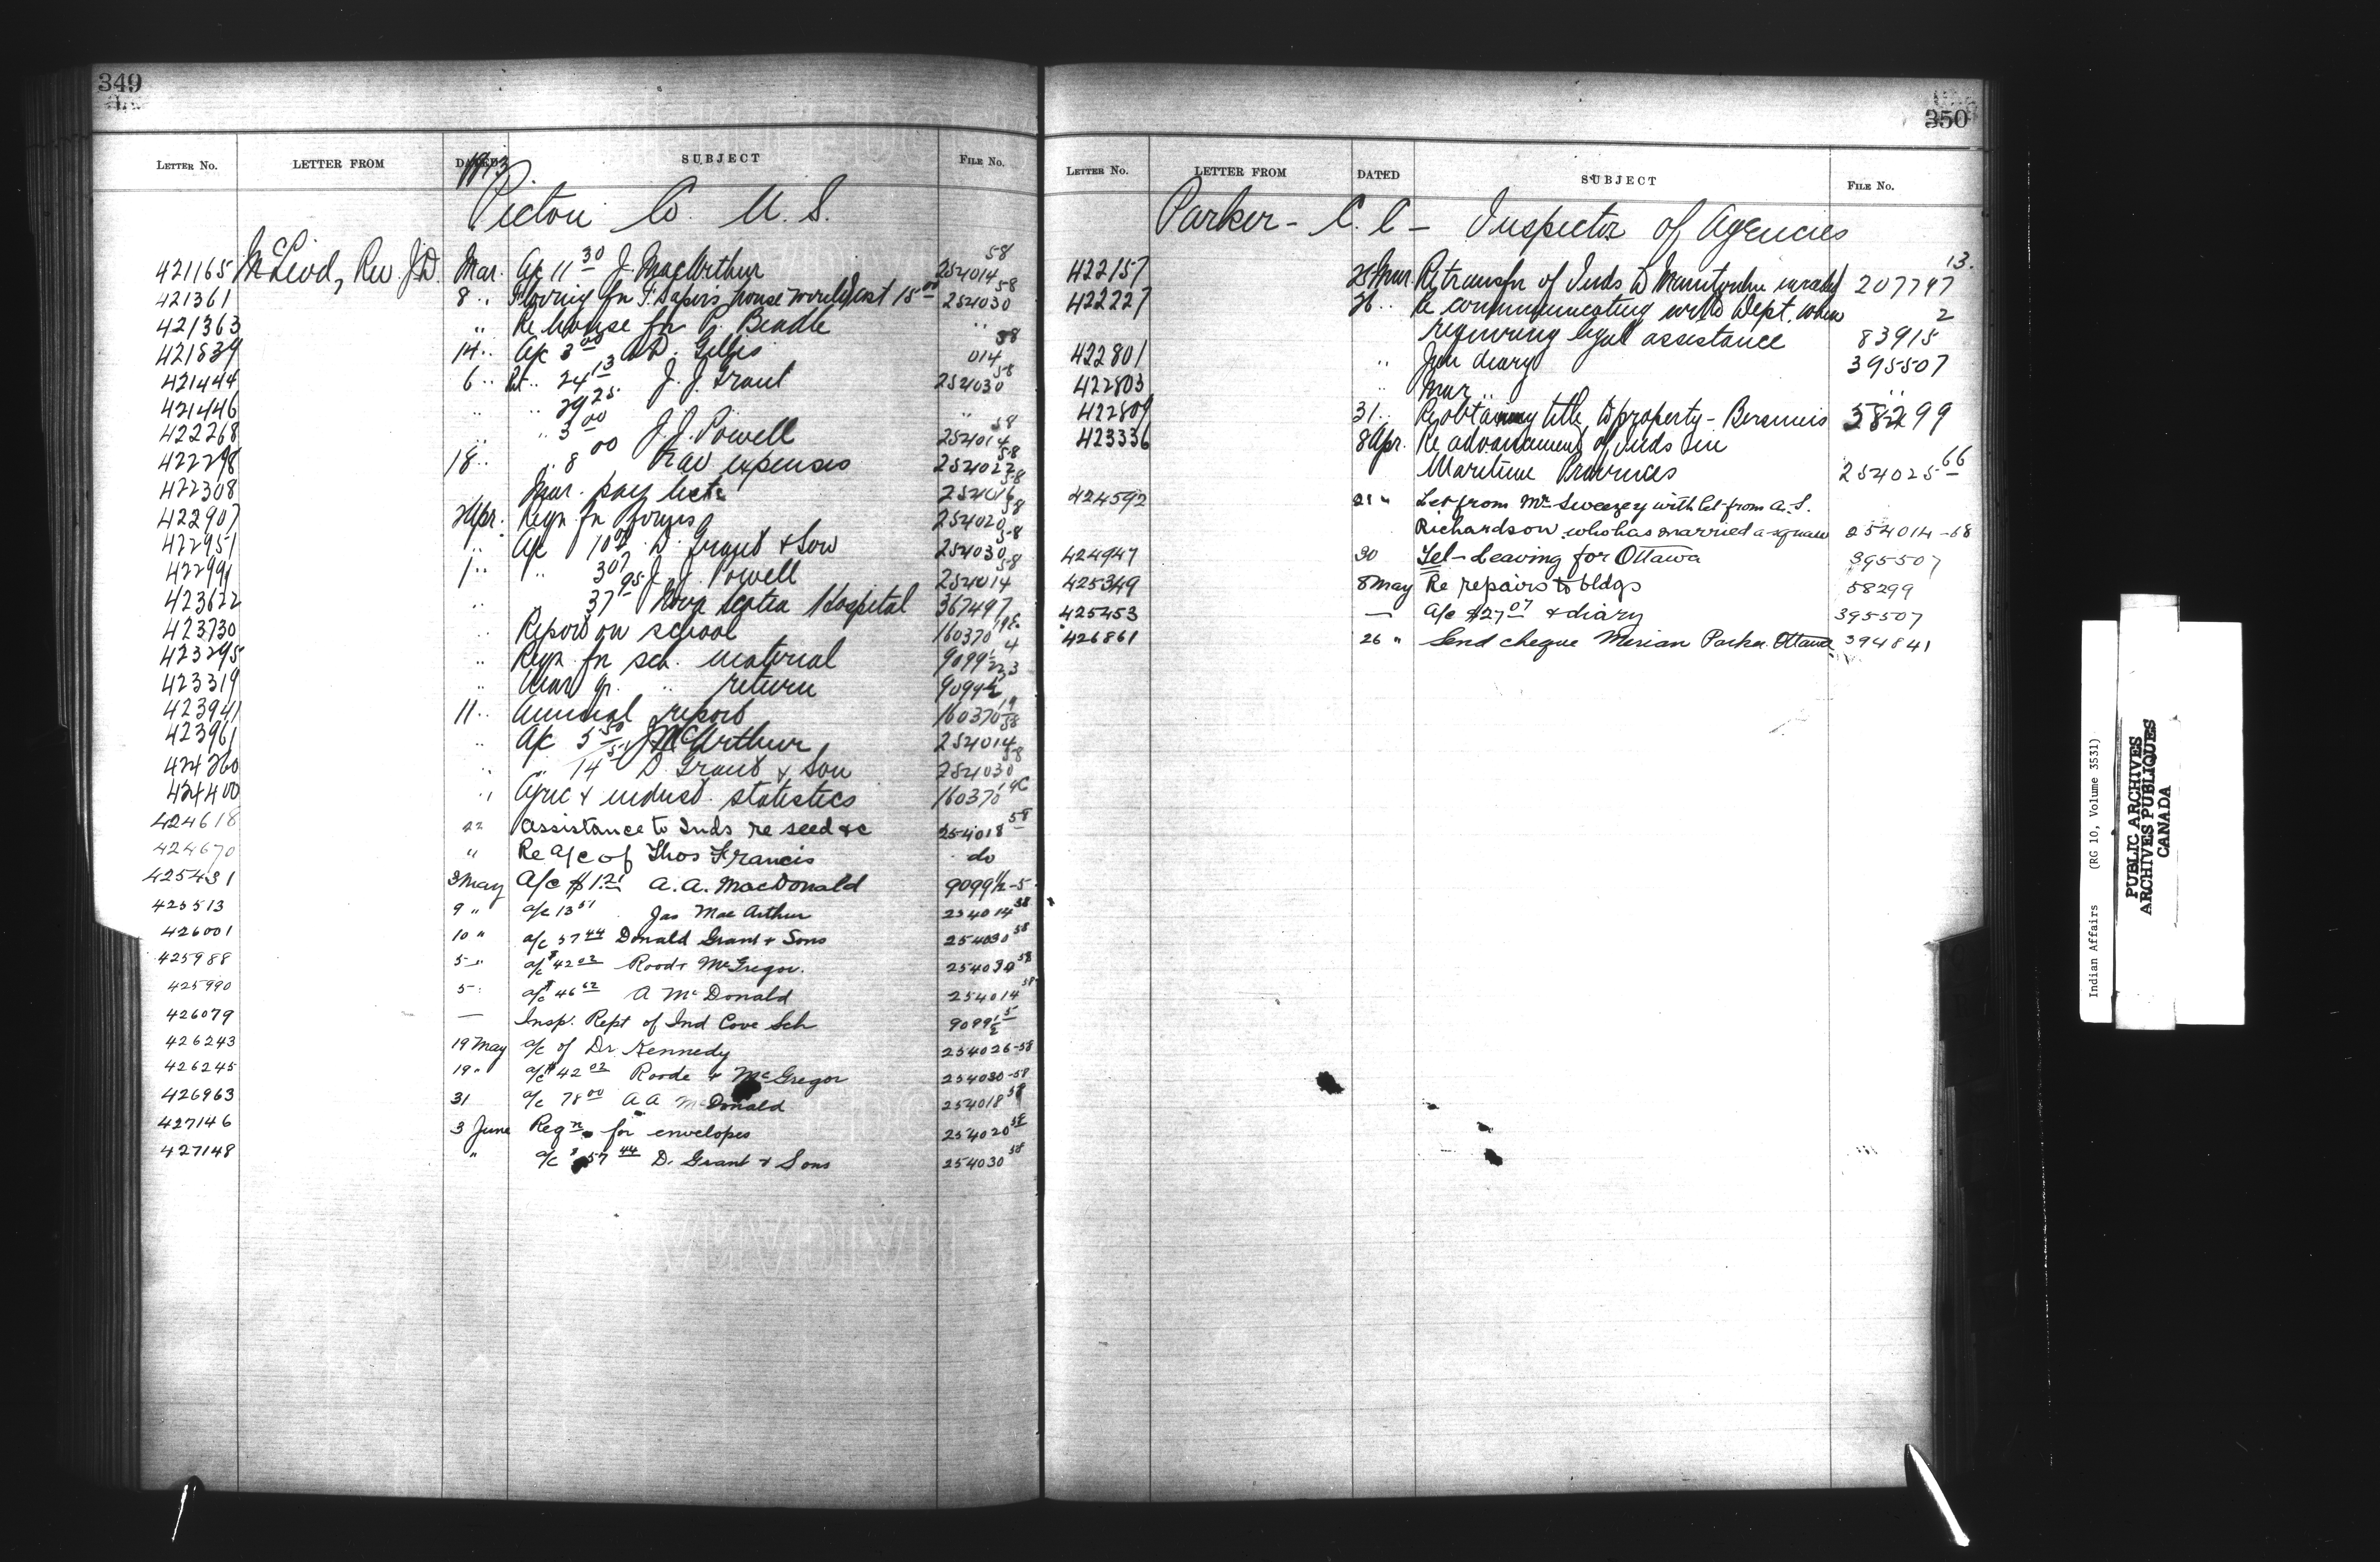 349
LETTER NO. LETTER FROM DATED SUBJECT FILE No.
1913
Pictou Co. N.S.
421165 McLeod, Rev J.D. Mar. A/c 11 30 J. MacArthur 254014 58
421361 8 " Flooring for house 15 00 254030 58
421363 " Re house for P. Beadle "
421839 14 " A/c 3 00 D. Gillis 014 58
421444 6 " 24 13 J. J. Grant 254030 58
421446 " " 29 25 "
422268 " " 3 00 J. J. Powell 254014 58
422298 18 " " 8 00 Trav expenses 254022 58
422308 Mar. pay lists 254016 58
422907 2 Apr. Reqn for forms 254020 58
422951 " A/c 10 D. Grant & Son 254030 58
422991 1 " " 3 07 J. J. Powell 254014 58
423622 " 37 95 Nova Scotia Hospital 367497
423730 " Report on school 160370
423295 " Reqn for sch. material 9099½
423319 " Mar qr. " return 9099½
423941 11 " Annual report 160370
423961 " A/c 5 50 J McArthur 254014 58
424260 " " 14 51 D. Grant & Son 254030 58
424400 " Agric & indust. statistics 160370
424618 22 Assistance to Inds re seed &c 254018 58
424670 " Re a/c of Thos Francis do
425431 3 May A/c $1.21 A.A. MacDonald 9099½-5
425513 9 " a/c 13 51 Jas MacArthur 254014 58
426001 10 " a/c 57 44 Donald Grant & Sons 254030 58
425988 5 " a/c $42 02 Rood & McGregor. 254030 58
425990 5 " a/c $46 62 A McDonald 254014 58
426079 — Insp. Rept of Ind Cove Sch 9099½ 5
426243 19 May a/c of Dr Kennedy 254026-58
426245 19 " a/c $42 02 Roode & McGregor 254030-58
426963 31 a/c 78 00 A A McDonald 254018 58
427146 3 June Reqn for envelopes 254020 58
427148 " a/c $57 44 D. Grant & Sons 254030 58
350
LETTER NO. LETTER FROM DATED SUBJECT FILE No.
Parker - C. C - Inspector of Agencies
422157 25 Mar. Re transfer of Inds to 207797 13.
422227 26 " Re communicating with Dept. when
requiring legal assistance 83915 2
422801 " Jan diary 395507
422803 " Mar " "
422809 31 " Re obtaining title to property - Bersimis 58299
423336 8 Apr. Re advancement of Inds in
Maritime Provinces 254025 66
424592 21 " Let from Mr Sweezey with let from A. S.
Richardson who has married a squaw 254014-58
424947 30 Tel - Leaving for Ottawa 395507
425349 8 May Re repairs to bldgs 58299
425453 — A/c $27 07 & diary 395507
426861 26 " Send cheque Merian Parker Ottawa 394841
Indian Affairs (RG 10, Volume 3531)
PUBLIC ARCHIVES
ARCHIVES PUBLIQUES
CANADA